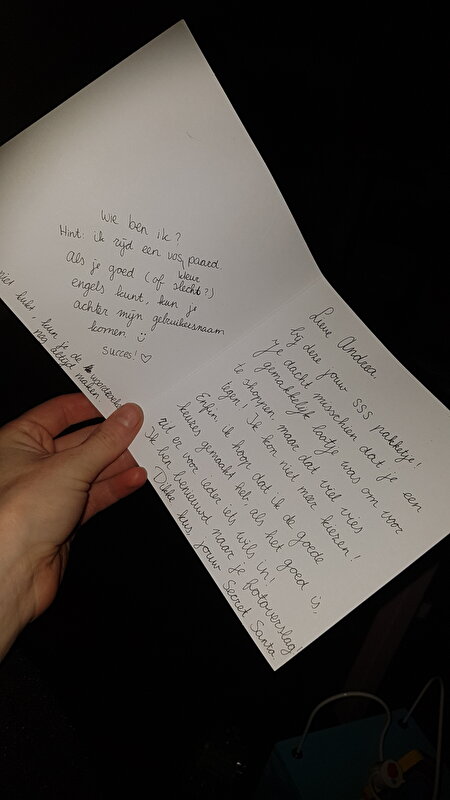 Wie ben ik?
Hint: ik rijd een vos paard.
kleur
Als je goed (of slecht?)
engels kunt, kun je
achter mijn gebruikersnaam
komen
succes! ♡
niet lukt, kun je de
nog altijd maken.
Lieve Andrea,
bij deze jouw SSS pakketje!
Je dacht misschien dat je een
gemakkelijk lootje was om voor
te shoppen, maar dat viel vies
tegen! Ik kon niet meer kiezen!
Enfin, ik hoop dat ik de goede
keuzes gemaakt heb, als het goed is,
zit er voor ieder iets wils in!
Ik ben benieuwd naar je fotoverslag!
Dikke kus, jouw Secret Santa